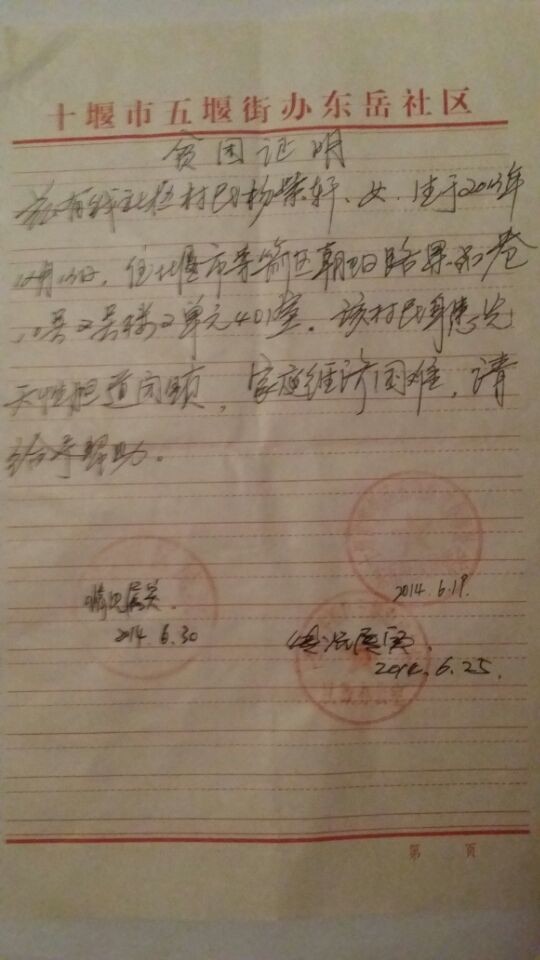 十堰市五堰街办东岳社区
贫困证明
兹有我社区村民杨紫轩、女、生于2013年
12月13日，住十堰市茅箭区朝阳路 巷
号2号楼2单元401室。该村民身患先
天性胆道闭锁，家庭经济困难，请
给予帮助。
2014.6.19
情况属实.
2014.6.30
情况属实.
2014.6.25
第 页